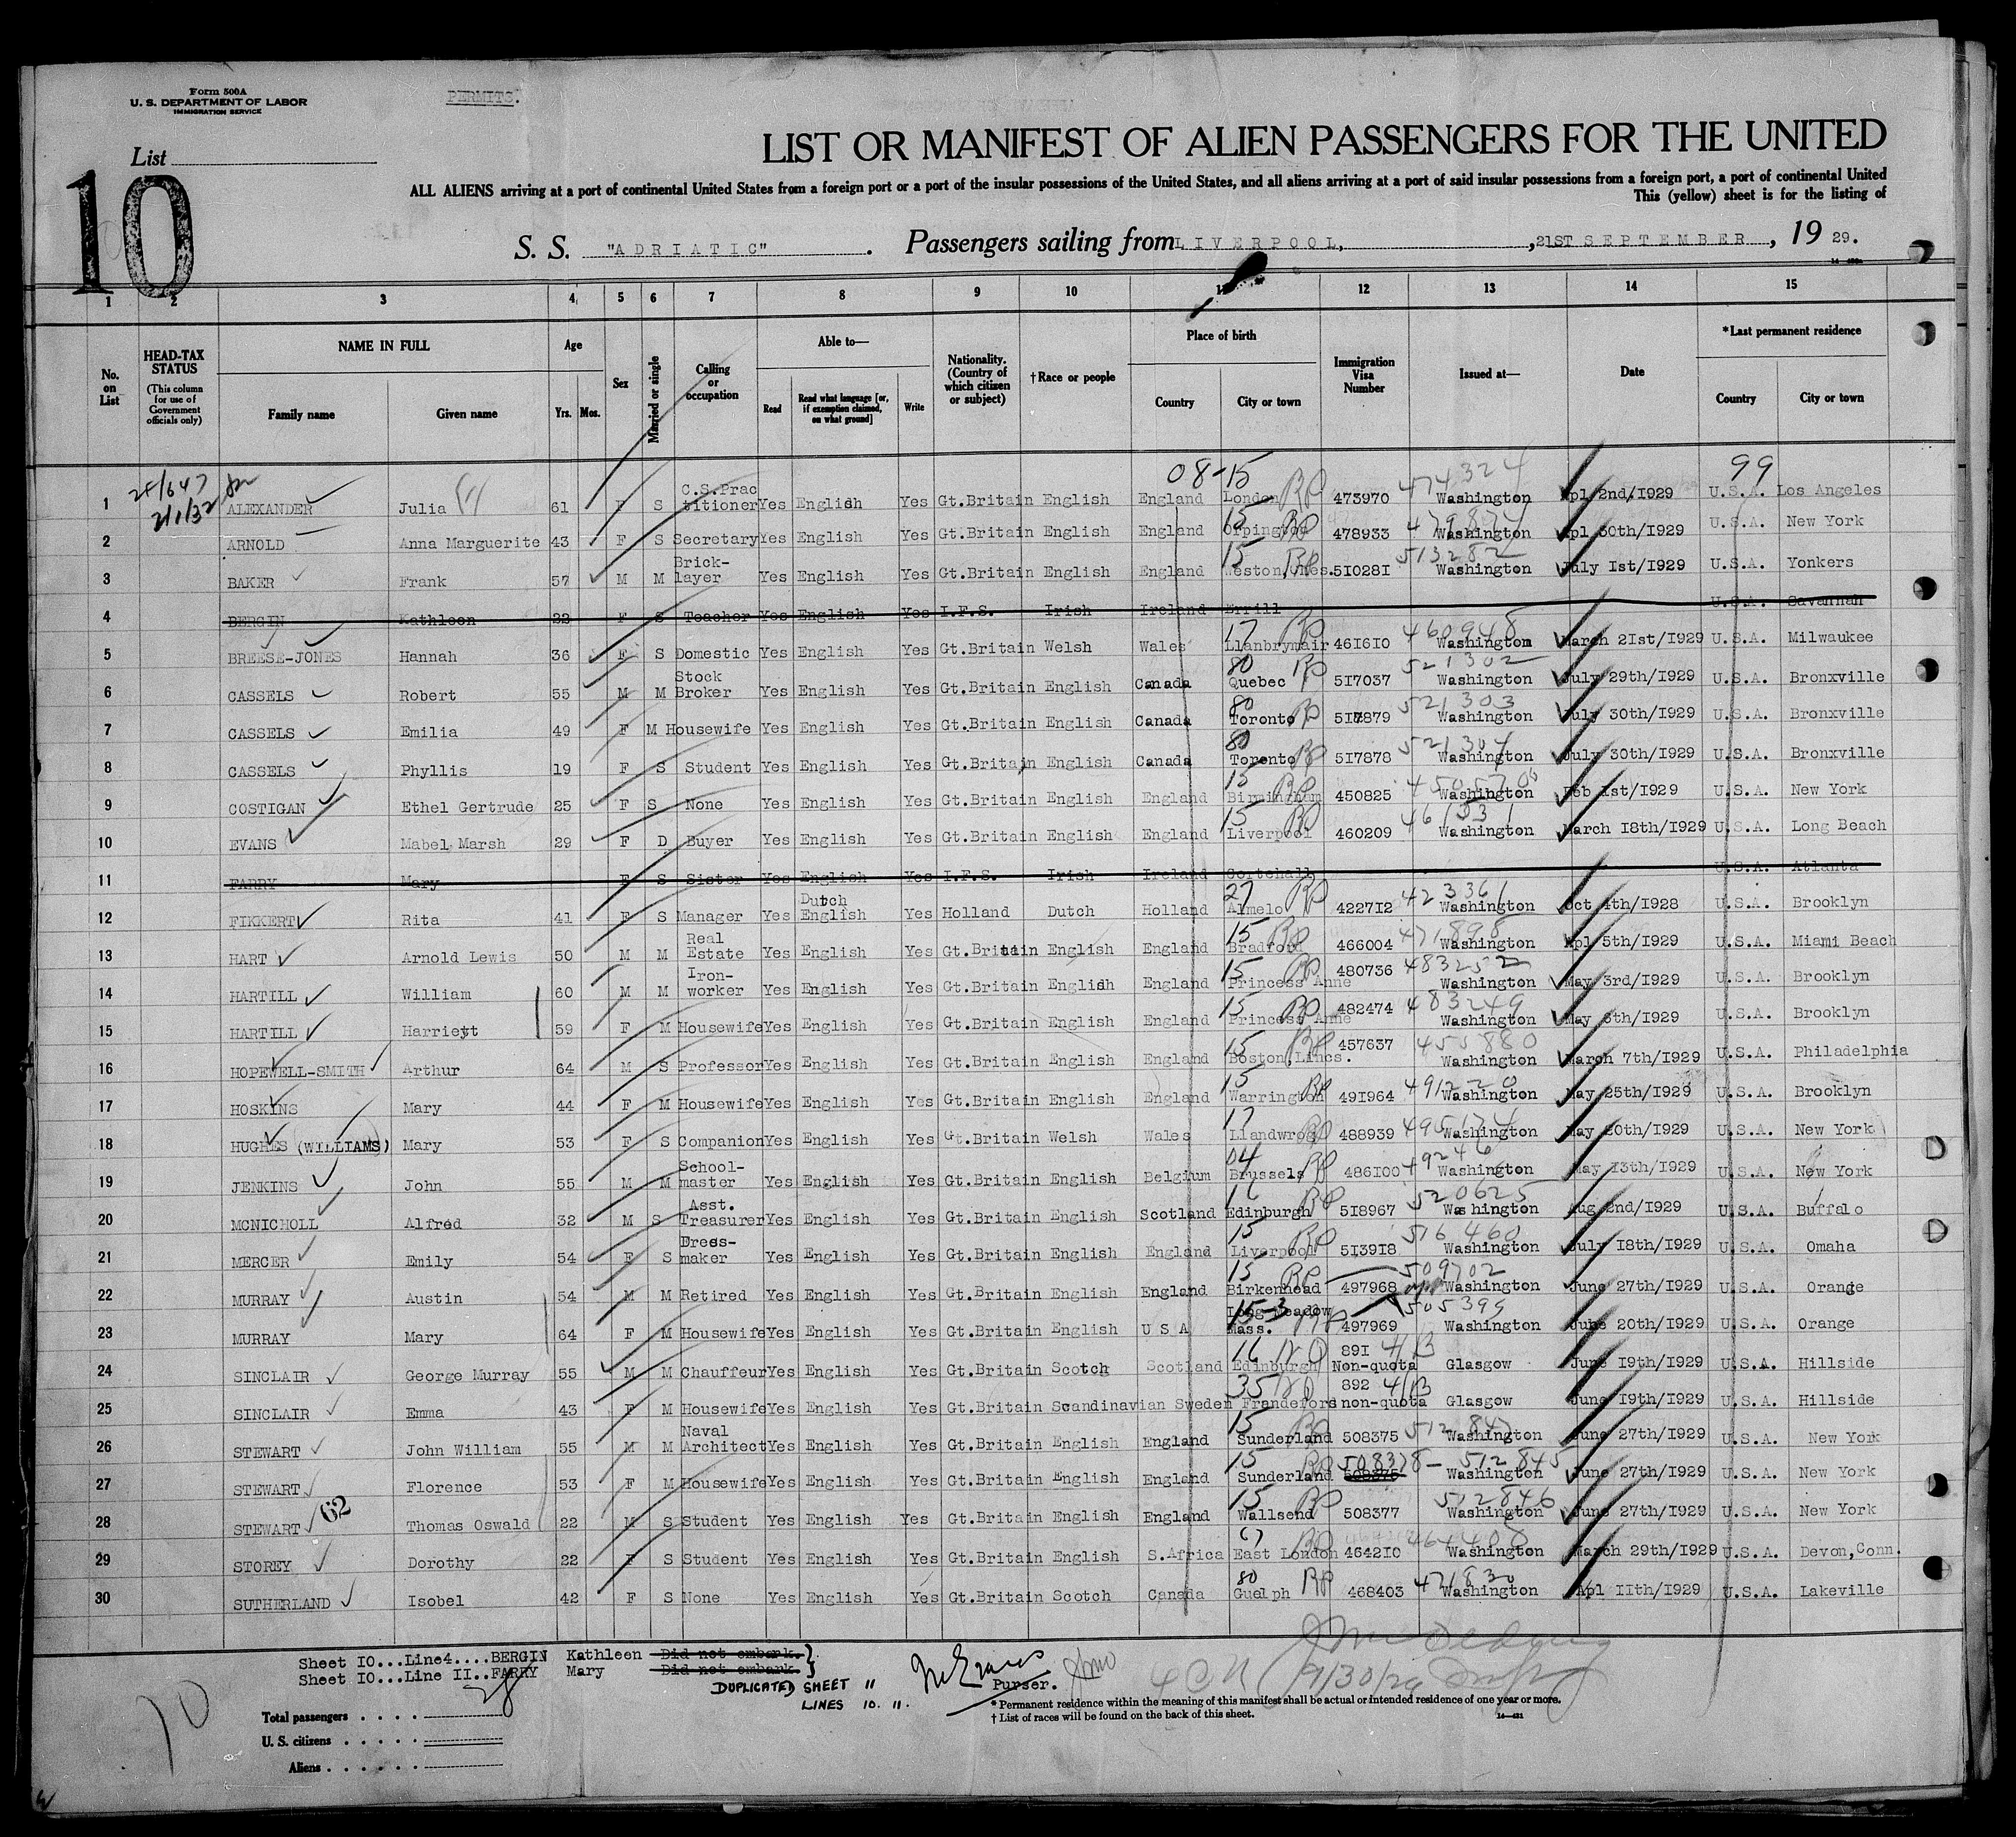 Form 500A
U. S. DEPARTMENT OF LABOR
IMMIGRATION SERVICE
PERMITS.
List
10
LIST OR MANIFEST OF ALIEN PASSENGERS FOR THE UNITED
ALL ALIENS arriving at a port of continental United States from a foreign port or a port of the insular possessions of the United States, and all aliens arriving at a port of said insular possessions from a foreign port, a port of continental United
This (yellow) sheet is for the listing of
S. S. "ADRIATIC". Passengers sailing from LIVERPOOL, , 21ST SEPTEMBER , 19 29.
1 2 3 4 5 6 7 8 9 10 11 12 13 14 15
No. on List
HEAD-TAX STATUS (This column for use of Government officials only)
NAME IN FULL Family name Given name
Age Yrs. Mos.
Sex
Married or single
Calling or occupation
Able to— Read Read what language [or, if exemption claimed, on what ground] Write
Nationality. (Country of which citizen or subject)
†Race or people
Place of birth Country City or town
Immigration Visa Number
Issued at—
Date
*Last permanent residence Country City or town
08-15 474324 99
1 ALEXANDER Julia 61 F S C.S.Practitioner Yes English Yes Gt.Britain English England London RP 473970 Washington Apl 2nd/1929 U.S.A. Los Angeles
2 ARNOLD Anna Marguerite 43 F S Secretary Yes English Yes Gt.Britain English England Orpington 15 RP 478933 Washington Apl 30th/1929 U.S.A. New York
3 BAKER Frank 57 M M Brick-layer Yes English Yes Gt.Britain English England 15 RP 510281 513282 Washington July 1st/1929 U.S.A. Yonkers
4 BERGIN Kathleen 22 F S Teacher Yes English Yes I.F.S. Irish Ireland Errill U.S.A. Savannah
5 BREESE-JONES Hannah 36 F S Domestic Yes English Yes Gt.Britain Welsh Wales Llanbrymair 17 RP 461610 460948 Washington March 21st/1929 U.S.A. Milwaukee
6 CASSELS Robert 55 M M Stock Broker Yes English Yes Gt.Britain English Canada Quebec 80 RP 517037 521302 Washington July 29th/1929 U.S.A. Bronxville
7 CASSELS Emilia 49 F M Housewife Yes English Yes Gt.Britain English Canada Toronto 80 RP 517879 521303 Washington July 30th/1929 U.S.A. Bronxville
8 CASSELS Phyllis 19 F S Student Yes English Yes Gt.Britain English Canada Toronto 80 RP 517878 521304 Washington July 30th/1929 U.S.A. Bronxville
9 COSTIGAN Ethel Gertrude 25 F S None Yes English Yes Gt.Britain English England Birmingham 15 RP 450825 Washington Feb 1st/1929 U.S.A. New York
10 EVANS Mabel Marsh 29 F D Buyer Yes English Yes Gt.Britain English England Liverpool 15 RP 460209 Washington March 18th/1929 U.S.A. Long Beach
11 FARRY Mary F S Sister Yes English Yes I.F.S. Irish Ireland U.S.A. Atlanta
12 FIKKERT Rita 41 F S Manager Yes Dutch English Yes Holland Dutch Holland Almelo 27 RP 422712 423361 Washington Oct 4th/1928 U.S.A. Brooklyn
13 HART Arnold Lewis 50 M M Real Estate Yes English Yes Gt.Britain English England Bradford 15 RP 466004 471898 Washington Apl 5th/1929 U.S.A. Miami Beach
14 HARTILL William 60 M M Iron-worker Yes English Yes Gt.Britain English England Princess Anne 15 RP 480736 483252 Washington May 3rd/1929 U.S.A. Brooklyn
15 HARTILL Harriett 59 F M Housewife Yes English Yes Gt.Britain English England Princess Anne 15 RP 482474 483249 Washington May 6th/1929 U.S.A. Brooklyn
16 HOPEWELL-SMITH Arthur 64 M S Professor Yes English Yes Gt.Britain English England Boston,Lincs. 15 RP 457637 455880 Washington March 7th/1929 U.S.A. Philadelphia
17 HOSKINS Mary 44 F M Housewife Yes English Yes Gt.Britain English England Warrington 15 RP 491964 491220 Washington May 25th/1929 U.S.A. Brooklyn
18 HUGHES (WILLIAMS) Mary 53 F S Companion Yes English Yes Gt.Britain Welsh Wales Llandwrog 17 RP 488939 495174 Washington May 20th/1929 U.S.A. New York
19 JENKINS John 55 M M School-master Yes English Yes Gt.Britain English Belgium Brussels 04 RP 486100 Washington May 13th/1929 U.S.A. New York
20 MCNICHOLL Alfred 32 M S Asst. Treasurer Yes English Yes Gt.Britain English Scotland Edinburgh 16 RP 518967 520625 Washington Aug 2nd/1929 U.S.A. Buffalo
21 MERCER Emily 54 F S Dress-maker Yes English Yes Gt.Britain English England Liverpool 15 RP 513918 516460 Washington July 18th/1929 U.S.A. Omaha
22 MURRAY Austin 54 M M Retired Yes English Yes Gt.Britain English England Birkenhead 15 RP 497968 509702 Washington June 27th/1929 U.S.A. Orange
23 MURRAY Mary 64 F M Housewife Yes English Yes Gt.Britain English U S A Long Meadow Mass. 15-3 497969 505399 Washington June 20th/1929 U.S.A. Orange
24 SINCLAIR George Murray 55 M M Chauffeur Yes English Yes Gt.Britain Scotch Scotland Edinburgh 16 891 Non-quota 4/B Glasgow June 19th/1929 U.S.A. Hillside
25 SINCLAIR Emma 43 F M Housewife Yes English Yes Gt.Britain Scandinavian Sweden Frandefors 35 892 non-quota 4/B Glasgow June 19th/1929 U.S.A. Hillside
26 STEWART John William 55 M M Naval Architect Yes English Yes Gt.Britain English England Sunderland 15 RP 508375 512847 Washington June 27th/1929 U.S.A. New York
27 STEWART Florence 53 F M Housewife Yes English Yes Gt.Britain English England Sunderland 15 RP 508378 - 512845 Washington June 27th/1929 U.S.A. New York
28 STEWART 62 Thomas Oswald 22 M S Student Yes English Yes Gt.Britain English England Wallsend 15 RP 508377 512846 Washington June 27th/1929 U.S.A. New York
29 STOREY Dorothy 22 F S Student Yes English Yes Gt.Britain English S.Africa East London 67 RP 464210 464408 Washington March 29th/1929 U.S.A. Devon,Conn.
30 SUTHERLAND Isobel 42 F S None Yes English Yes Gt.Britain Scotch Canada Guelph 80 RP 468403 471830 Washington Apl 11th/1929 U.S.A. Lakeville
Sheet 10...Line4....BERGIN Kathleen Did not embark.
Sheet 10...Line II..FARRY Mary Did not embark.
DUPLICATED SHEET 11
LINES 10. 11.
Purser.
9/30/29
10
* Permanent residence within the meaning of this manifest shall be actual or intended residence of one year or more.
† List of races will be found on the back of this sheet.
Total passengers
U. S. citizens
Aliens